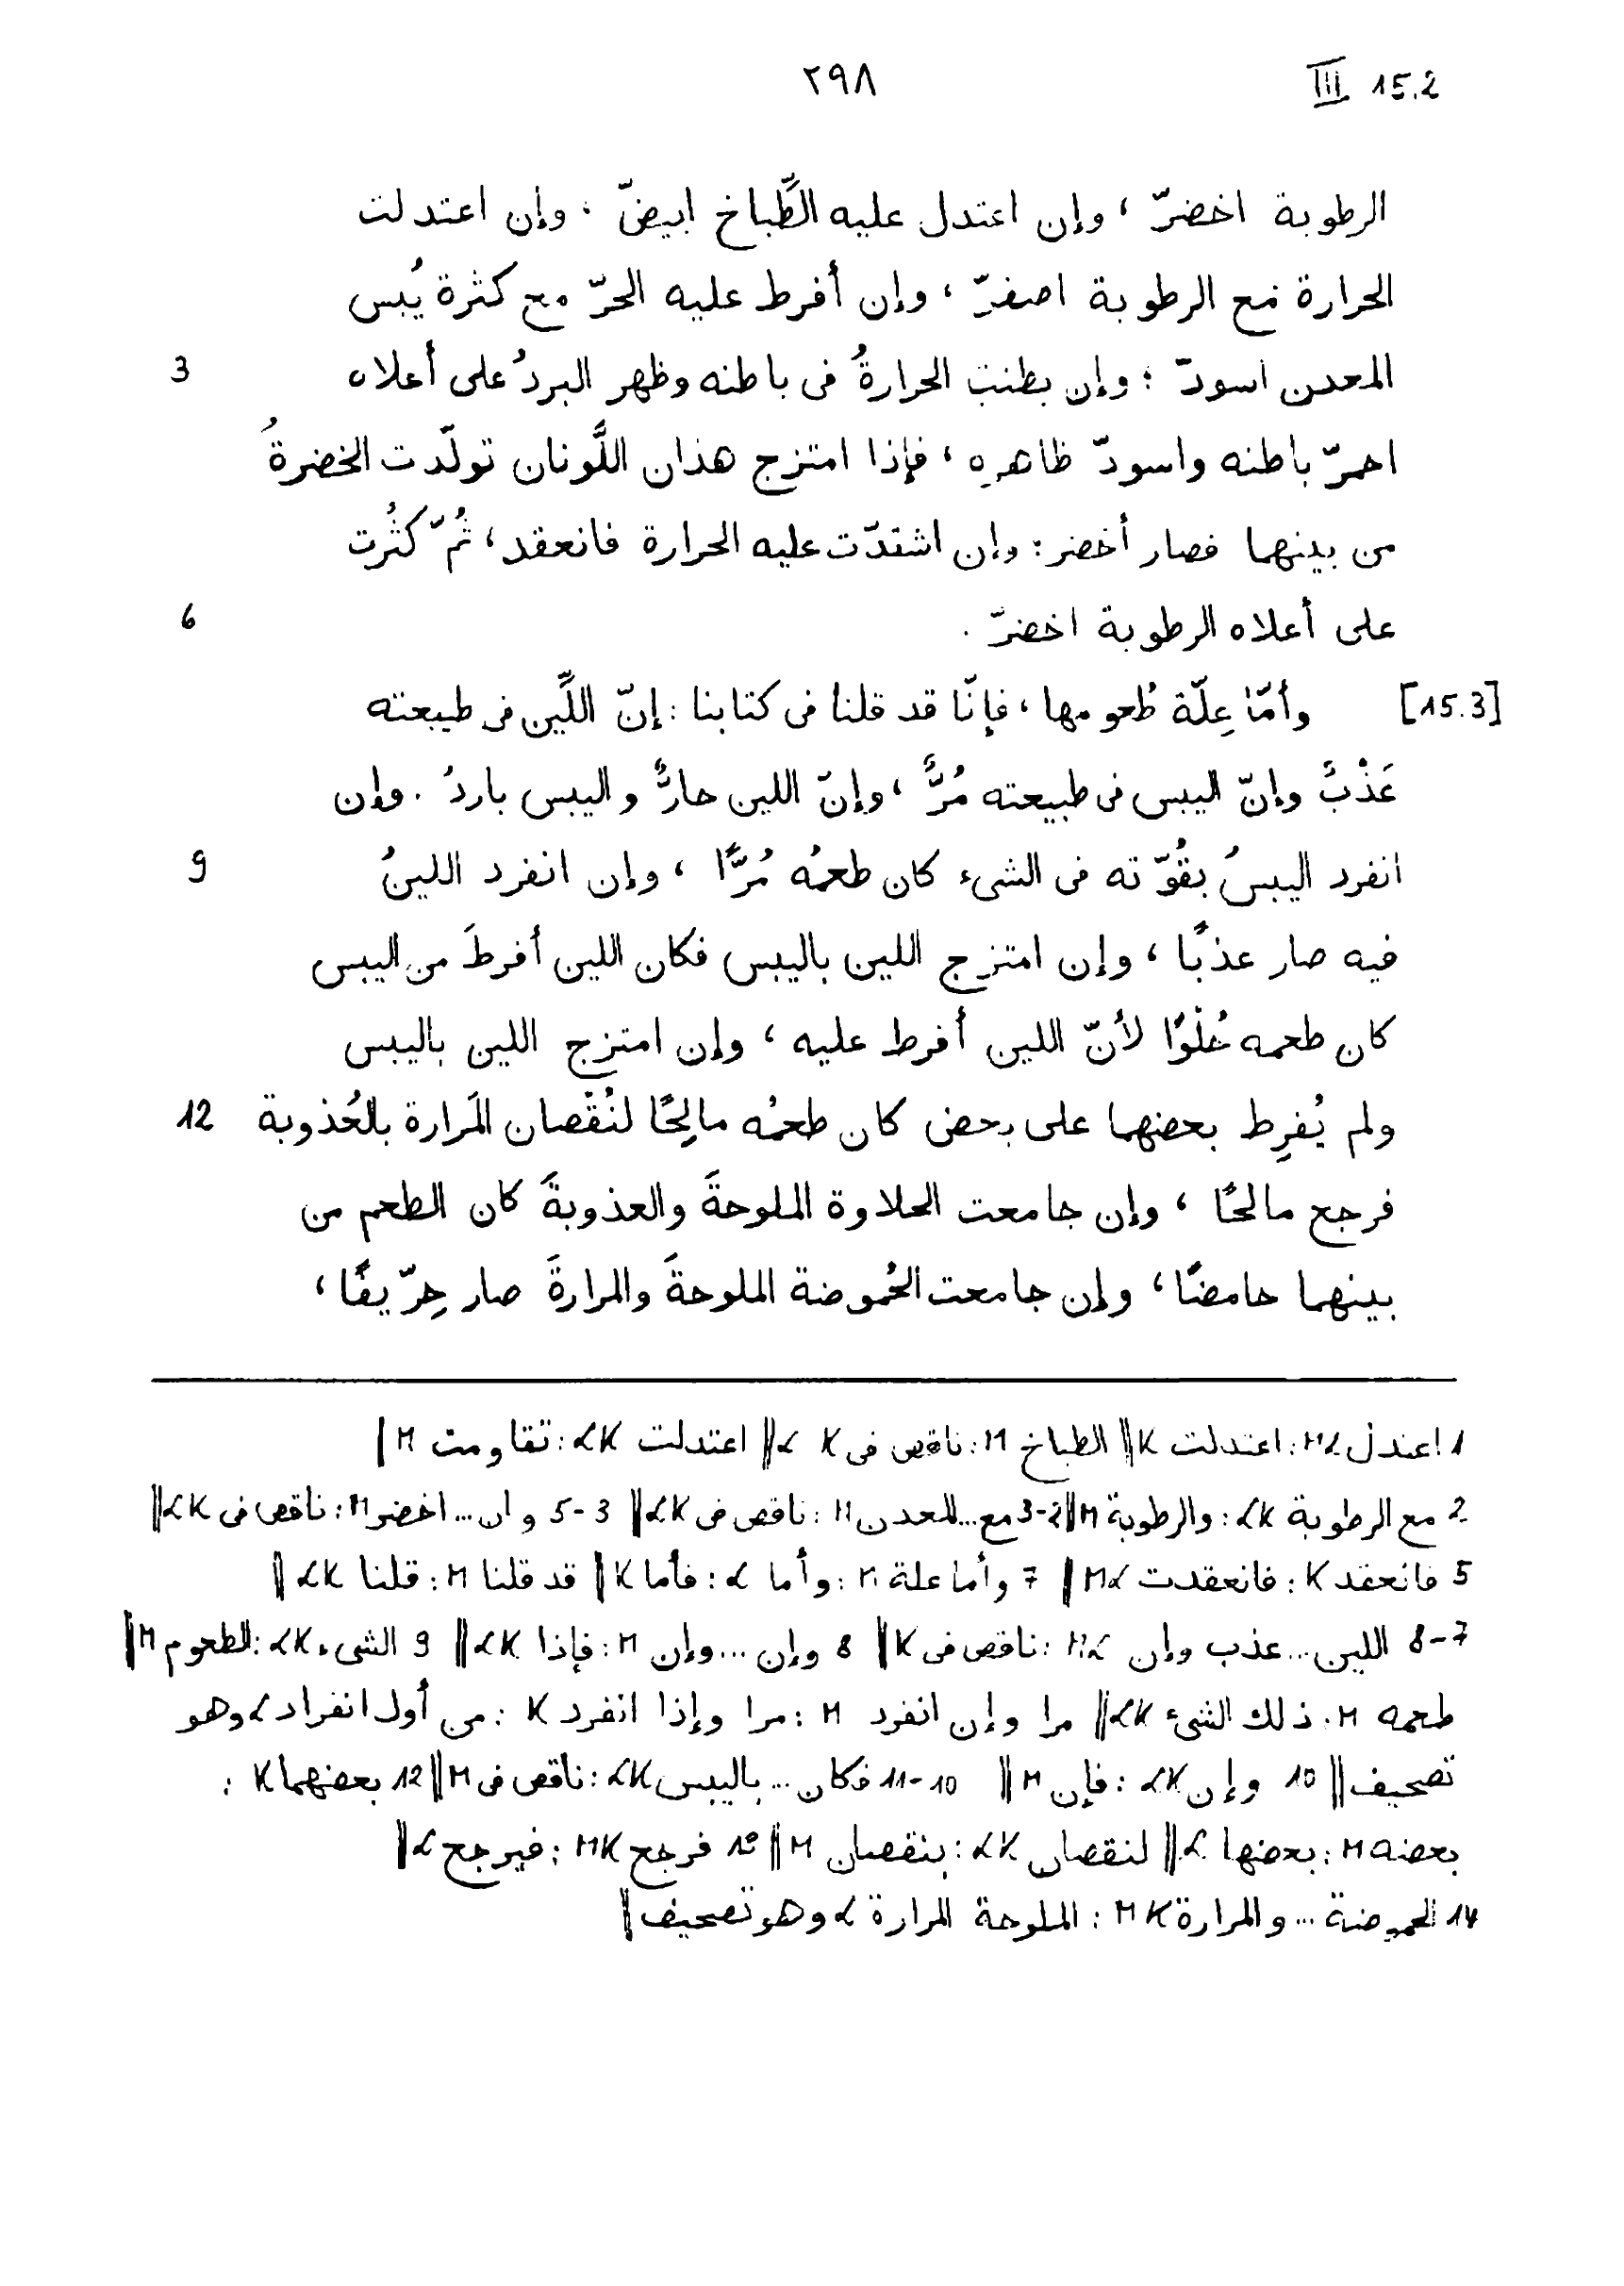 ٢٩٨ III 15.2
الرطوبة اخضرّ ، وإن اعتدل عليه الطَّباخ ابيضّ ؛ وإن اعتدلت
الحرارة مع الرطوبة اصفرّ ، وإن أفرط عليه الحرّ مع كثرة يُبس
المعدن اسودّ ؛ وإن بطنت الحرارةُ فى باطنه وظهر البردُ على أعلاه 3
احمرّ باطنه واسودّ ظاهره ، فإذا امتزج هذان اللَّونان تولّدت الخضرةُ
من بينهما فصار أخضر ؛ وإن اشتدّت عليه الحرارة فانعقد ، ثُمّ كثُرت
على أعلاه الرطوبة اخضرّ . 6
[15.3] وأمّا عِلّة طُعومها ، فإنّا قد قلنا فى كتابنا : إنّ اللِّين فى طبيعته
عَذْبٌ وإنّ اليبس فى طبيعته مُرٌّ ، وإنّ اللين حارٌّ واليبس باردٌ . وإن
انفرد اليبسُ بقُوّته فى الشىء كان طعمُه مُرًّا ، وإن انفرد اللينُ 9
فيه صار عذبًا ، وإن امتزج اللين باليبس فكان اللين أفرطَ من اليبس
كان طعمه حُلْوًا لأنّ اللين أفرط عليه ، وإن امتزج اللين باليبس
ولم يُفرِط بعضهما على بعض كان طعمُه مالِحًا لنُقْصان المَرارة بالعُذوبة 12
فرجع مالحًا ، وإن جامعت الحلاوة الملوحةَ والعذوبةَ كان الطعم من
بينهما حامضًا ، وإن جامعت الحُموضة الملوحةَ والمرارةَ صار حِرّيفًا ،
1 اعتدل ML : اعتدلت K || الطباخ M : ناقص فى K L || اعتدلت LK : تقاومت M |
2 مع الرطوبة LK : والرطوبة M || 2-3 مع ... المعدن M : ناقص فى LK || 3-5 وان ... اخضر M : ناقص فى LK ||
5 فانعقد K : فانعقدت ML || 7 وأما علة M : وأما L : فأما K || قد قلنا M : قلنا LK ||
7-8 اللين ... عذب وإن ML : ناقص فى K || 8 وإن ... وإن M : فإذا LK || 9 الشىء LK : الطعوم M ||
طعمه M : ذلك الشىء LK || مرا وإن انفرد M : مرا وإذا انفرد K : من أول انفراد L وهو
تصحيف || 10 وإن LK : فإن M || 10-11 فكان ... باليبس LK : ناقص فى M || 12 بعضهما K :
بعضه M : بعضها L || لنقصان LK : بنقصان M || 13 فرجع MK : فيرجع L ||
14 الحموضة ... والمرارة MK : الملوحة المرارة L وهو تصحيف ||